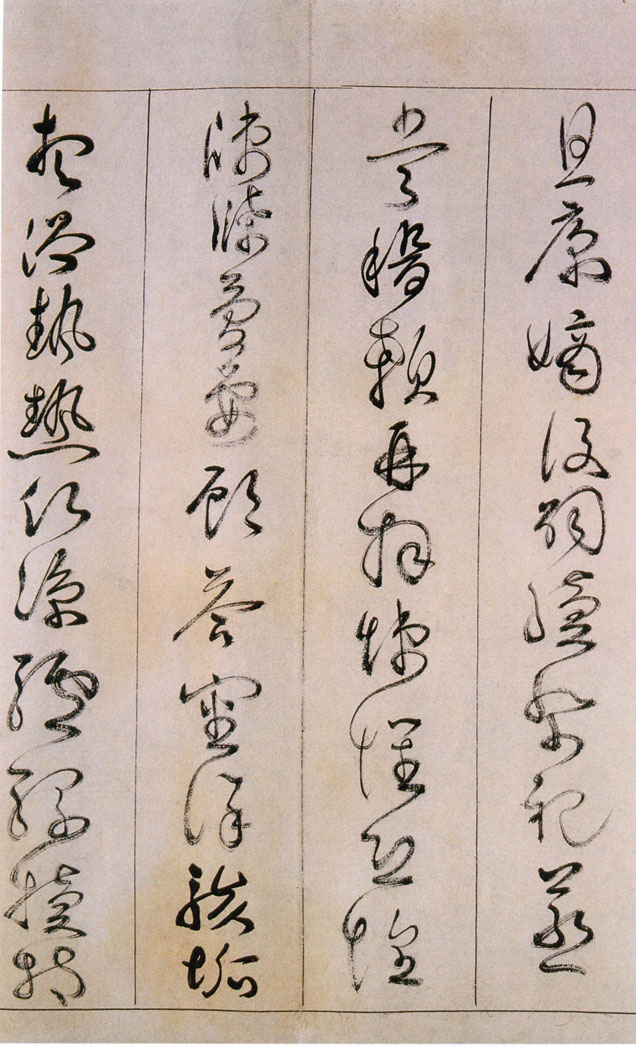 且康嫡後嗣續祭祀蒸
嘗稽顙再拜悚懼恐惶
牋牒簡要顧答審詳骸垢
想浴執熱願涼驢騾犢特